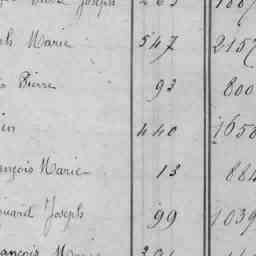 Joseph 263
Marie 547 2157
Pierre 93 800
en 440 1650
ançois Marie 13 884
ouard Joseph 99 1039
rançois Marie